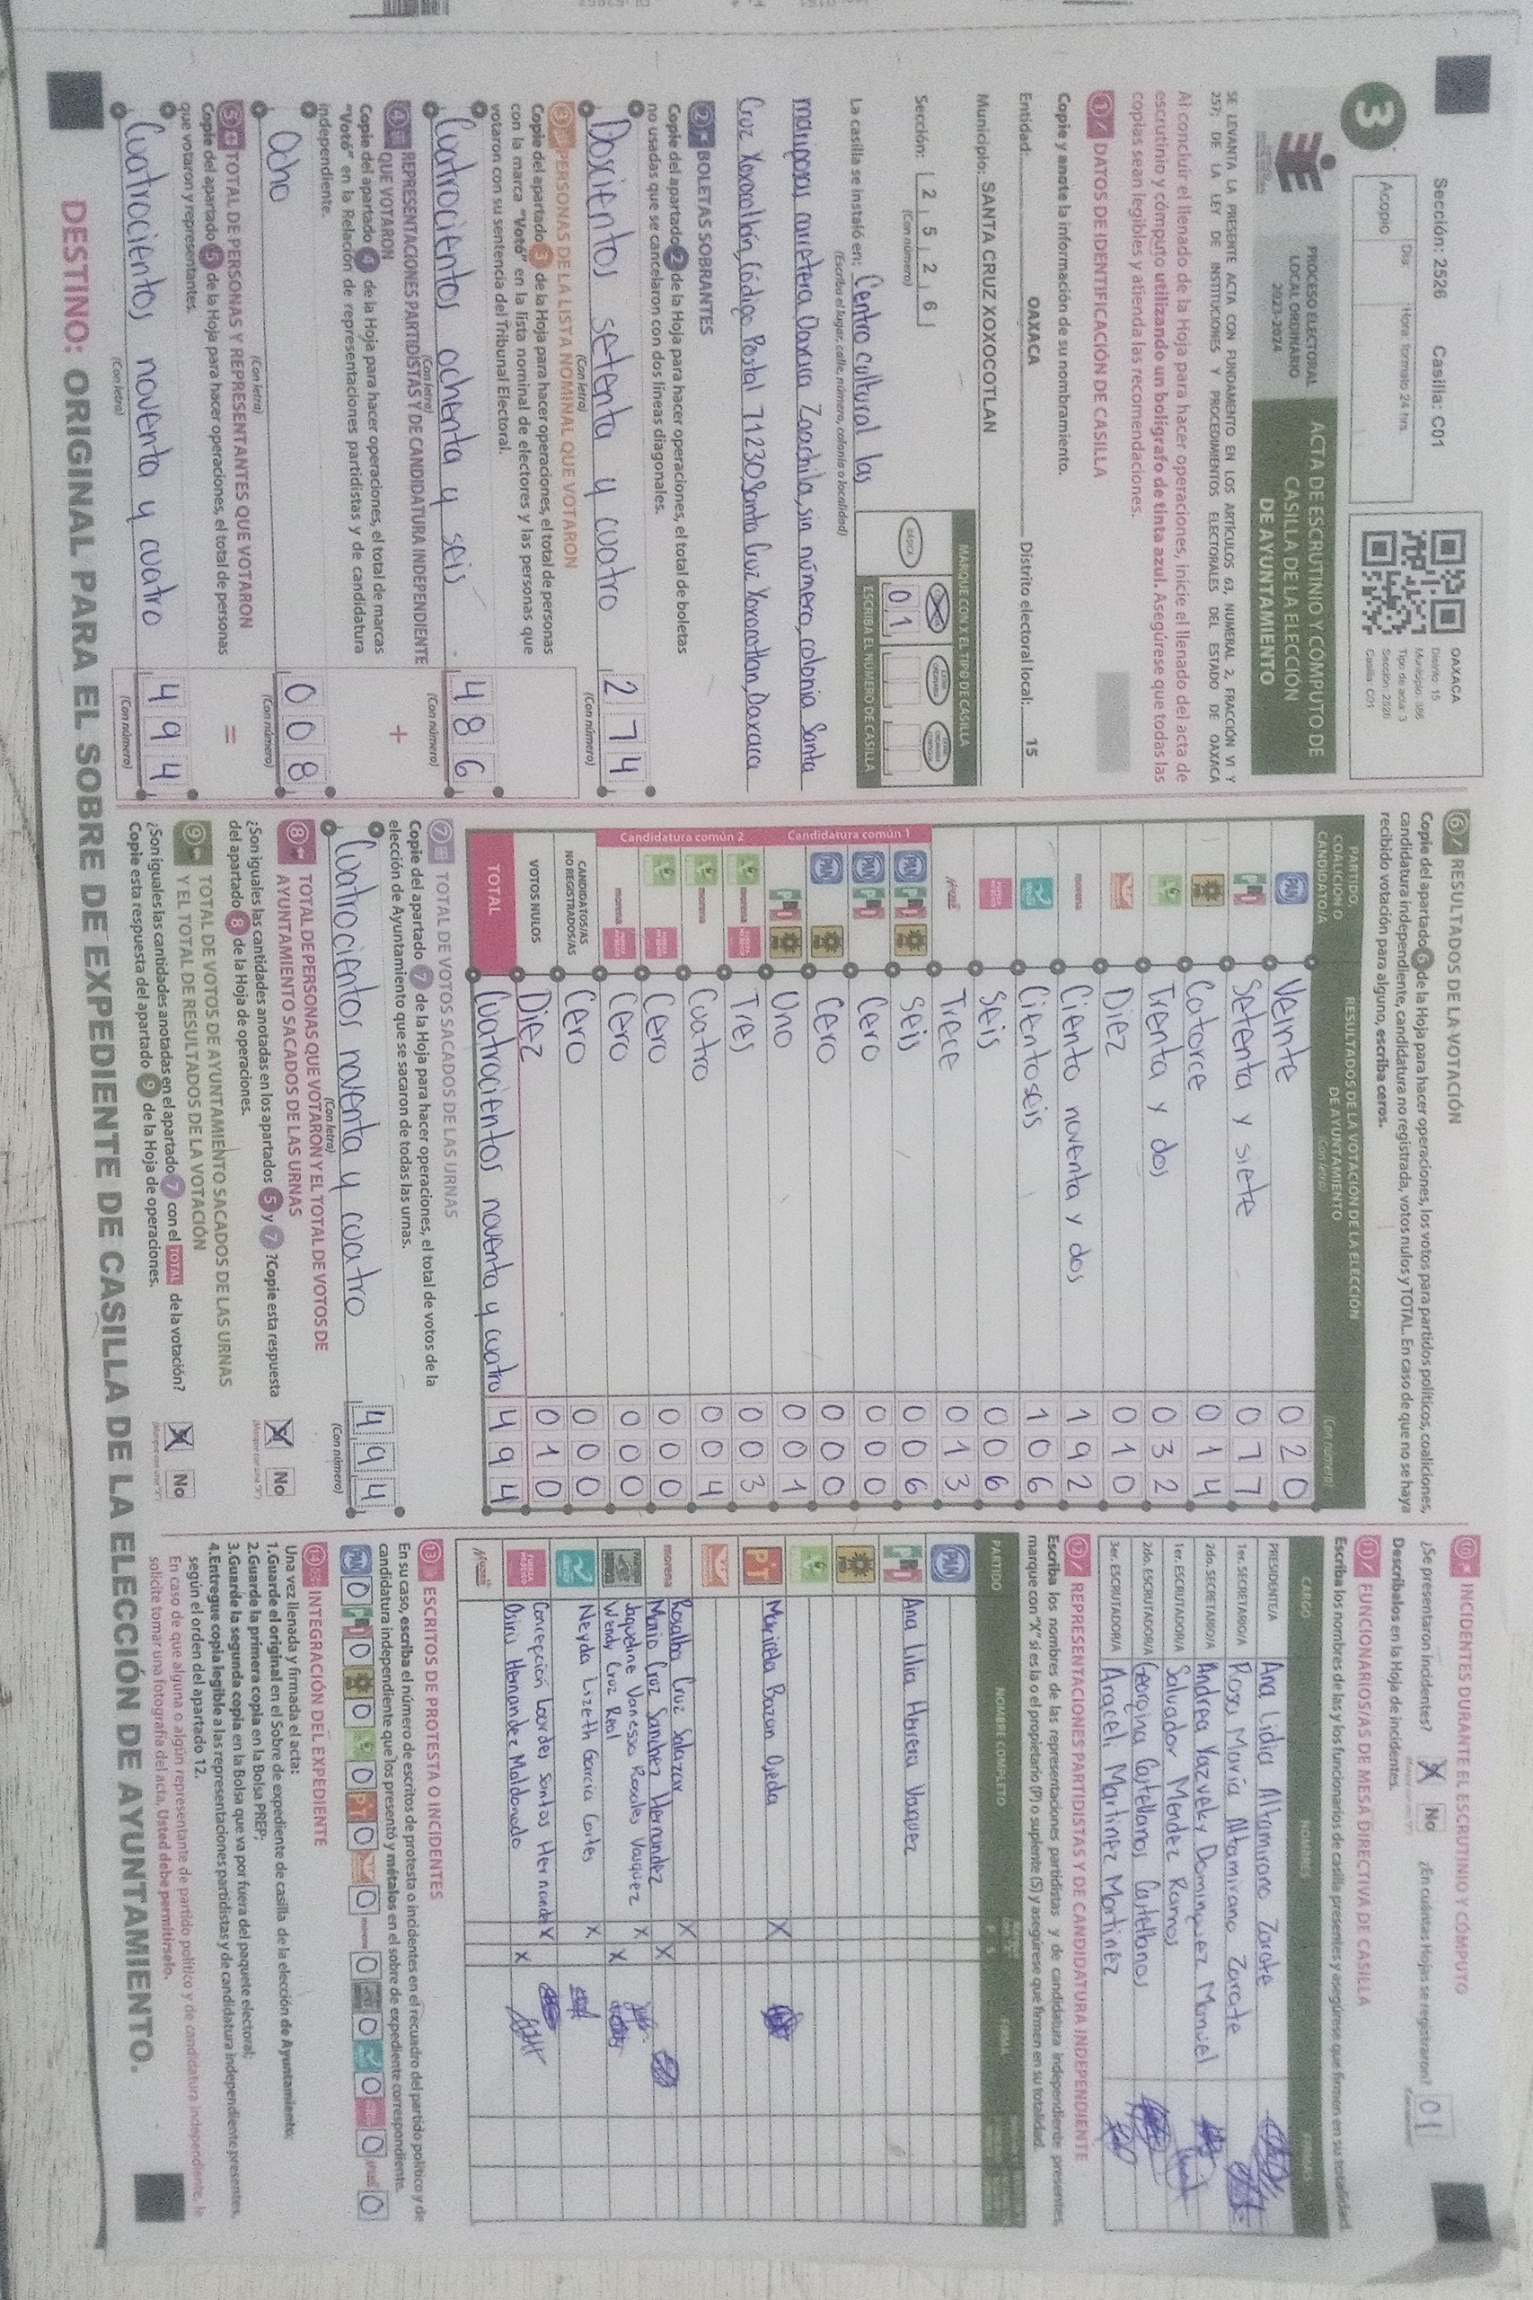 Sección: 2526 Casilla: C01
3
Día: Hora: formato 24 hrs.
Acopio
OAXACA
Distrito: 15
Municipio: 386
Tipo de acta: 3
Sección: 2526
Casilla: C01
PROCESO ELECTORAL
LOCAL ORDINARIO
2023-2024
ACTA DE ESCRUTINIO Y CÓMPUTO DE
CASILLA DE LA ELECCIÓN
DE AYUNTAMIENTO
SE LEVANTA LA PRESENTE ACTA CON FUNDAMENTO EN LOS ARTÍCULOS 63, NUMERAL 2, FRACCIÓN VI Y
257; DE LA LEY DE INSTITUCIONES Y PROCEDIMIENTOS ELECTORALES DEL ESTADO DE OAXACA
Al concluir el llenado de la Hoja para hacer operaciones, inicie el llenado del acta de
escrutinio y cómputo utilizando un bolígrafo de tinta azul. Asegúrese que todas las
copias sean legibles y atienda las recomendaciones.
1 DATOS DE IDENTIFICACIÓN DE CASILLA
Copie y anote la información de su nombramiento.
Entidad: OAXACA Distrito electoral local: 15
Municipio: SANTA CRUZ XOXOCOTLAN
Sección: 2 5 2 6
(Con número)
MARQUE CON X EL TIPO DE CASILLA
BÁSICA
0 1
ESCRIBA EL NÚMERO DE CASILLA
La casilla se instaló en: Centro cultural las
(Escriba el lugar, calle, número, colonia o localidad)
mariposas carretera Oaxaca Zaachila, sin número, colonia Santa
Cruz Xoxocotlán, Código Postal 71230 Santa Cruz Xoxocotlan, Oaxaca
2 BOLETAS SOBRANTES
Copie del apartado 2 de la Hoja para hacer operaciones, el total de boletas
no usadas que se cancelaron con dos líneas diagonales.
Doscientos setenta y cuatro 2 7 4
(Con letra) (Con número)
3 PERSONAS DE LA LISTA NOMINAL QUE VOTARON
Copie del apartado 3 de la Hoja para hacer operaciones, el total de personas
con la marca "Votó" en la lista nominal de electores y las personas que
votaron con su sentencia del Tribunal Electoral.
Cuatrocientos ochenta y seis 4 8 6
(Con letra) (Con número)
4 REPRESENTACIONES PARTIDISTAS Y DE CANDIDATURA INDEPENDIENTE
QUE VOTARON +
Copie del apartado 4 de la Hoja para hacer operaciones, el total de marcas
"Votó" en la Relación de representaciones partidistas y de candidatura
independiente.
Ocho 0 0 8
(Con letra) (Con número)
5 TOTAL DE PERSONAS Y REPRESENTANTES QUE VOTARON =
Copie del apartado 5 de la Hoja para hacer operaciones, el total de personas
que votaron y representantes.
Cuatrocientos noventa y cuatro 4 9 4
(Con letra) (Con número)
6 RESULTADOS DE LA VOTACIÓN
Copie del apartado 6 de la Hoja para hacer operaciones, los votos para partidos políticos, coaliciones,
candidatura independiente, candidatura no registrada, votos nulos y TOTAL. En caso de que no se haya
recibido votación para alguno, escriba ceros.
PARTIDO, COALICIÓN O CANDIDATO/A
RESULTADOS DE LA VOTACIÓN DE LA ELECCIÓN
DE AYUNTAMIENTO
(Con letra) (Con número)
PAN Veinte 0 2 0
PRI Setenta y siete 0 7 7
PRD Catorce 0 1 4
Treinta y dos 0 3 2
Diez 0 1 0
morena Ciento noventa y dos 1 9 2
Ciento seis 1 0 6
Seis 0 0 6
Trece 0 1 3
Candidatura común 1
PAN PRI PRD Seis 0 0 6
PAN PRI Cero 0 0 0
PAN PRD Cero 0 0 0
PRI PRD Uno 0 0 1
Candidatura común 2
morena Tres 0 0 3
morena Cuatro 0 0 4
Cero 0 0 0
morena Cero 0 0 0
CANDIDATOS/AS
NO REGISTRADOS/AS Cero 0 0 0
VOTOS NULOS Diez 0 1 0
TOTAL Cuatrocientos noventa y cuatro 4 9 4
7 TOTAL DE VOTOS SACADOS DE LAS URNAS
Copie del apartado 7 de la Hoja para hacer operaciones, el total de votos de la
elección de Ayuntamiento que se sacaron de todas las urnas.
Cuatrocientos noventa y cuatro 4 9 4
(Con letra) (Con número)
8 TOTAL DE PERSONAS QUE VOTARON Y EL TOTAL DE VOTOS DE
AYUNTAMIENTO SACADOS DE LAS URNAS
¿Son iguales las cantidades anotadas en los apartados 5 y 7 ? Copie esta respuesta
del apartado 8 de la Hoja de operaciones.
X No
9 TOTAL DE VOTOS DE AYUNTAMIENTO SACADOS DE LAS URNAS
Y EL TOTAL DE RESULTADOS DE LA VOTACIÓN
¿Son iguales las cantidades anotadas en el apartado 7 con el TOTAL de la votación?
Copie esta respuesta del apartado 9 de la Hoja de operaciones.
X No
10 INCIDENTES DURANTE EL ESCRUTINIO Y CÓMPUTO
¿Se presentaron incidentes? X No ¿En cuántas Hojas se registraron? 01
Descríbalos en la Hoja de incidentes.
11 FUNCIONARIOS/AS DE MESA DIRECTIVA DE CASILLA
Escriba los nombres de las y los funcionarios de casilla presentes y asegúrese que firmen en su totalidad.
CARGO NOMBRES FIRMAS
PRESIDENTE/A Ana Lidia Altamirano Zarate
1er. SECRETARIO/A Rosa María Altamirano Zarate
2do. SECRETARIO/A Andrea Yazveky Dominguez Manuel
1er. ESCRUTADOR/A Salvador Mendez Ramos
2do. ESCRUTADOR/A Georgina Castellanos Castellanos
3er. ESCRUTADOR/A Araceli Martinez Martinez
12 REPRESENTACIONES PARTIDISTAS Y DE CANDIDATURA INDEPENDIENTE
Escriba los nombres de las representaciones partidistas y de candidatura independiente presentes,
marque con "X" si es la o el propietario (P) o suplente (S) y asegúrese que firmen en su totalidad.
PARTIDO NOMBRE COMPLETO P S FIRMA
PAN
PRI Ana Lilia Herrera Vasquez
PRD
PT Maricela Bazan Ojeda X
morena Rosalba Cruz Salazar X
Mario Cruz Sanchez Hernandez X
Jaqueline Vanessa Rosales Vasquez X
Wendy Cruz Real X
Neyda Lizeth García Cortes X
Concepción Lourdes Santos Hernandez X
Osiru Hernandez Maldonado X
13 ESCRITOS DE PROTESTA O INCIDENTES
En su caso, escriba el número de escritos de protesta o incidentes en el recuadro del partido político y de
candidatura independiente que los presentó y métalos en el sobre de expediente correspondiente.
PAN 0 PRI 0 PRD 0 0 PT 0 0 morena 0 0 0 0 0
14 INTEGRACIÓN DEL EXPEDIENTE
Una vez llenada y firmada el acta:
1. Guarde el original en el Sobre de expediente de casilla de la elección de Ayuntamiento;
2. Guarde la primera copia en la Bolsa PREP;
3. Guarde la segunda copia en la Bolsa que va por fuera del paquete electoral;
4. Entregue copia legible a las representaciones partidistas y de candidatura independiente presentes,
según el orden del apartado 12.
En caso de que alguna o algún representante de partido político y de candidatura independiente, le
solicite tomar una fotografía del acta, Usted debe permitírselo.
DESTINO: ORIGINAL PARA EL SOBRE DE EXPEDIENTE DE CASILLA DE LA ELECCIÓN DE AYUNTAMIENTO.